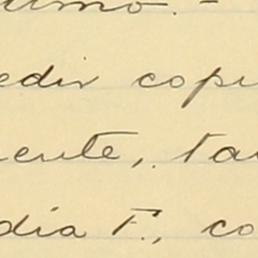 umo. -
edir copi
ente, ta
dia F., co